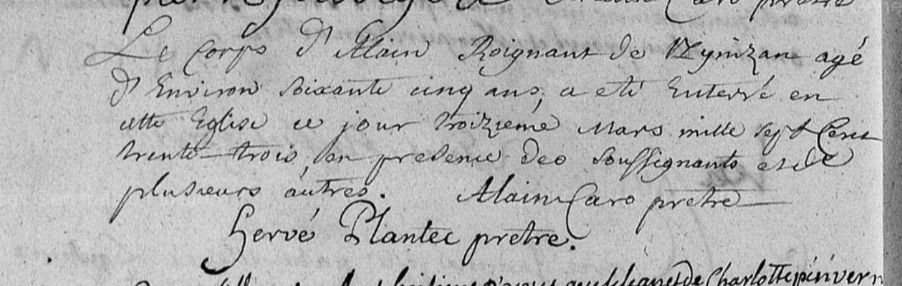 Alain Caro pretre
Le Corps d'Alain Roignant de agé
d'Environ soixante cinq ans a eté Enterré en
cette Eglise ce jour troizieme Mars mille sept Cent
trente-trois en presence des soussignants et de
plusieurs autres. Alain Caro pretre
Hervé Plantec pretre.
de Charlotte penvern